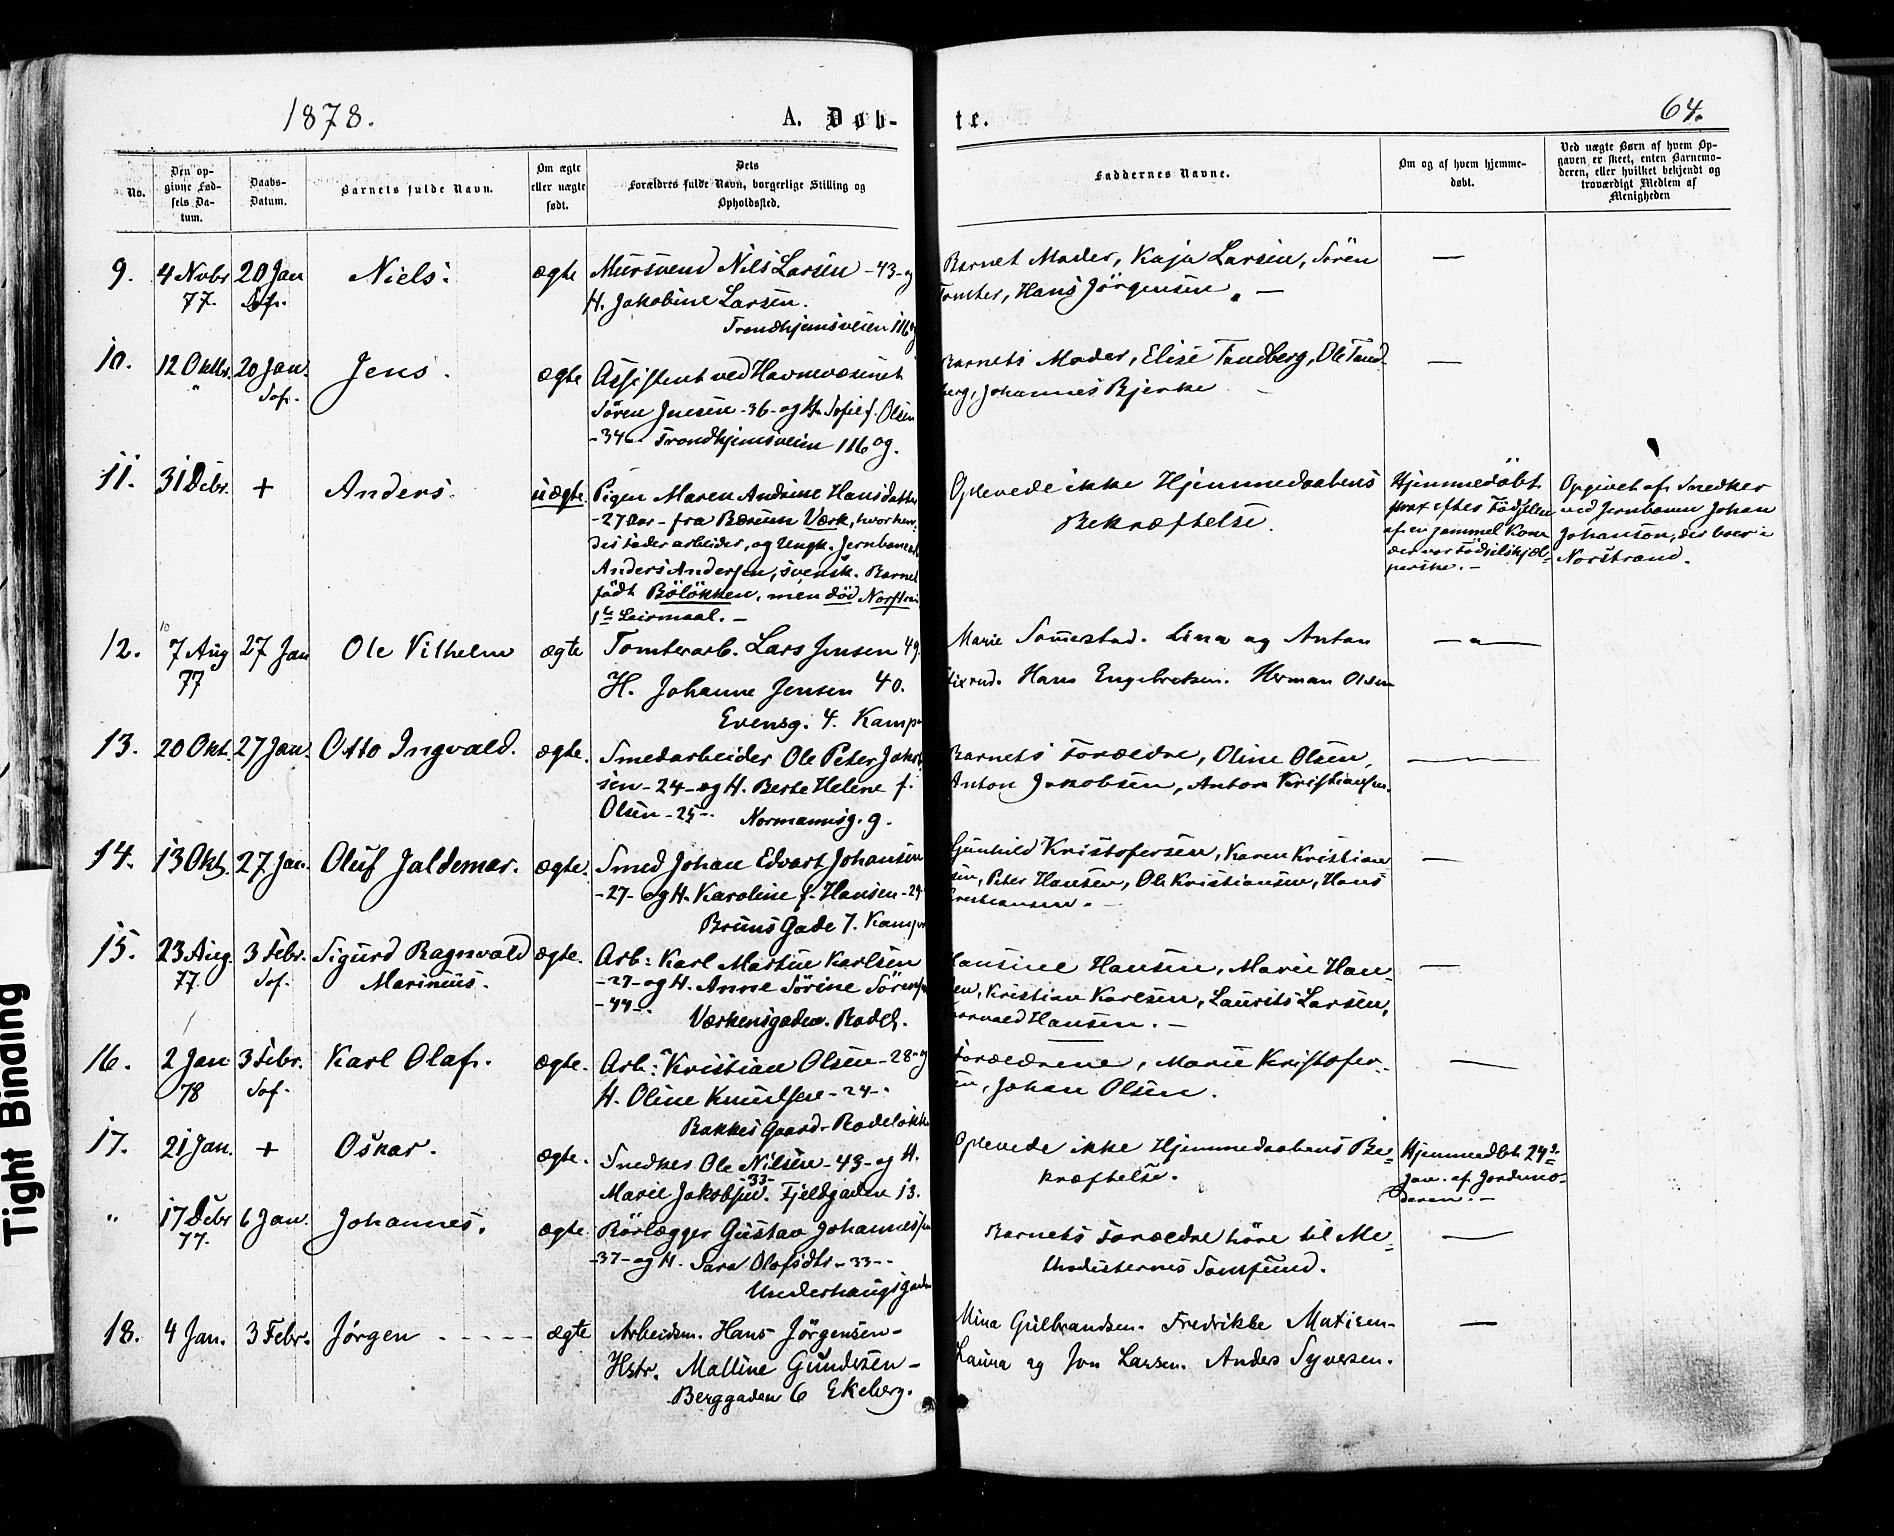 1878.
A. Døb-
te.
64.
No.
Den op-
givne Fød-
sels Da-
tum.
Daabs-
Datum.
Barnets fulde Navn.
Om ægte
eller uægte
født.
Dets
Forældres fulde Navn, borgerlige Stilling og
Opholdssted.
Faddernes Navne.
Om og af hvem hjemme-
døbt.
Ved uægte Børn af hvem Op-
gaven er skeet, enten Barnemo-
deren, eller hvilket bekjendt og
troværdigt Medlem af
Menigheden
9. 4 Novbr 20 Jan Niels. ægte Mursvend Nils Larsen -43- og Barnet Moder, Kaja Larsen, Sören —
77. Sof. H. Jakobine Larsen. Tomter, Hans Jörgensen. —
Trondhjemsveien 116 og
10. 12 Oktbr. 20 Jan. Jens. ægte Assistent ved Havnevæsenet Barnets Moder, Elise Tandberg, Ole Tand- —
" Sof. Sören Jensen -36- og H. Sofie f. Olsen berg, Johannes Bjerke
-34- Trondhjemsveien 116 og.
11. 31 Debr. + Anders. uægte. Pigen Maren Andrine Hansdatter Oplevede ikke Hjemmedaabens Hjemmedöbt Opgivet af Snedker
-27 Aar- fra Bærum Værk, hvor hen- Bekræftelse. strax efter Födselen ved Jernbanen Johan
des fader arbeider, og Ungk. Jernbanearb. af en gammel Kone Johanson, der boer i
Anders Andersen, svensk. Barnet der var Födselshjæl- Norstrand.
födt Bölökken, men död Norstran perske. —
1ste Leiermaal. —
12. 7 Aug 27 Jan Ole Vilhelm ægte Tomterarb. Lars Jensen 49. Marie Sommerstad. Lina og Anton — " —
77 H. Johanne Jensen 40. Hans Engebretsen. Herman Olsen
Evensg. 4. Kampen
13. 20 Okt. 27 Jan. Otto Ingvald. ægte. Smedarbeider Ole Peter Jakob- Barnets Forældre, Oline Olsen, —
sen -24- og H. Berte Helene f. Anton Jakobsen, Anton Kristiansen.
Olsen -25-. Normannsg. 9.
14. 13 Okt. 27 Jan. Oluf Jaldemar. ægte. Smed Johan Edvart Johansen Gunhild Kristofersen, Karen Kristian- —
-27- og H. Karoline f. Hansen -29- sen, Peter Hansen, Ole Kristiansen, Hans
Bruns Gade 7. Kampen Kristiansen. —
15. 23 Aug. 3 Febr. Sigurd Ragnvald ægte. Arb: Karl Martin Karlsen Hansine Hansen, Marie Han- —
77. Sof. Marinius. -27- og H. Anne Sörine Sörensen sen, Kristian Karlsen, Laurits Larsen,
-44-. Hansen. —
Værkensgaden. Rodel.
16. 2 Jan 3 Febr. Karl Olaf. ægte. Arb: Kristian Olsen -28- og Forældrene, Marie Kristofer- —
78 Sof. H. Oline Knudsen -24-. sen, Johan Olsen.
Bakkes Gaard. Rodeløkke
17. 21 Jan. + Oskar. ægte. Snedker Ole Nilsen -43- og H. Oplevede ikke Hjemmedaabens Be- Hjemmedöbt 24de
Marie Jakobsen. -33- Fjeldgaden 13. kræftelse. Jan. af Jordemo-
deren. —
" 17 Debr 6 Jan. Johannes. ægte. Rörlægger Gustav Johannessen Barnets Forældre höre til Me- —
77. -37- og H. Sara Olofsdtr -33-. thodisternes Samfund.
Underhaugsgaden
18. 4 Jan. 3 Febr. Jørgen ægte Arbeidsm. Hans Jörgensen- Mina Gulbrandsen. Fredrikke Matisen- —
Hstr. Malline Gundersen- Laura og Jon Larsen. Anders Syversen.
Berggaden 6 Ekeberg.
Tight Binding